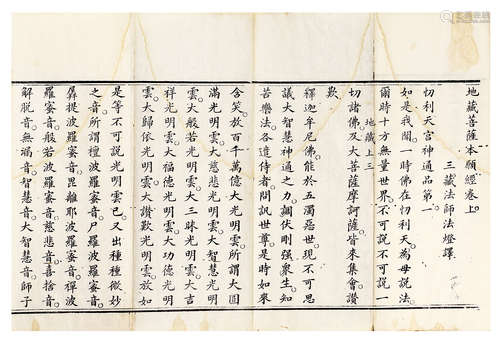 地藏菩薩本願經卷上。
三藏法師法燈譯
忉利天宮神通品第一
如是我聞。一時佛在忉利天。為母說法。
爾時十方無量世界。不可說不可說一
地藏上 三
切諸佛。及大菩薩摩訶薩。皆來集會。讚
歎
釋迦牟尼佛。能於五濁惡世。現不可思
議大智慧神通之力。調伏剛强衆生。知
苦樂法。各遣侍者。問訊世尊。是時如來
含笑。放百千萬億大光明雲。所謂大圓
滿光明雲。大慈悲光明雲。大智慧光明
雲。大般若光明雲。大三昧光明雲。大吉
祥光明雲。大福德光明雲。大功德光明
雲。大歸依光明雲。大讚歎光明雲。放如
是等不可說光明雲已。又出種種微妙
之音。所謂檀波羅蜜音。尸羅波羅蜜音。
羼提波羅蜜音。毘離耶波羅蜜音。禪波
羅蜜音。般若波羅蜜音。慈悲音。喜捨音。
解脫音。無漏音。智慧音。大智慧音。師子